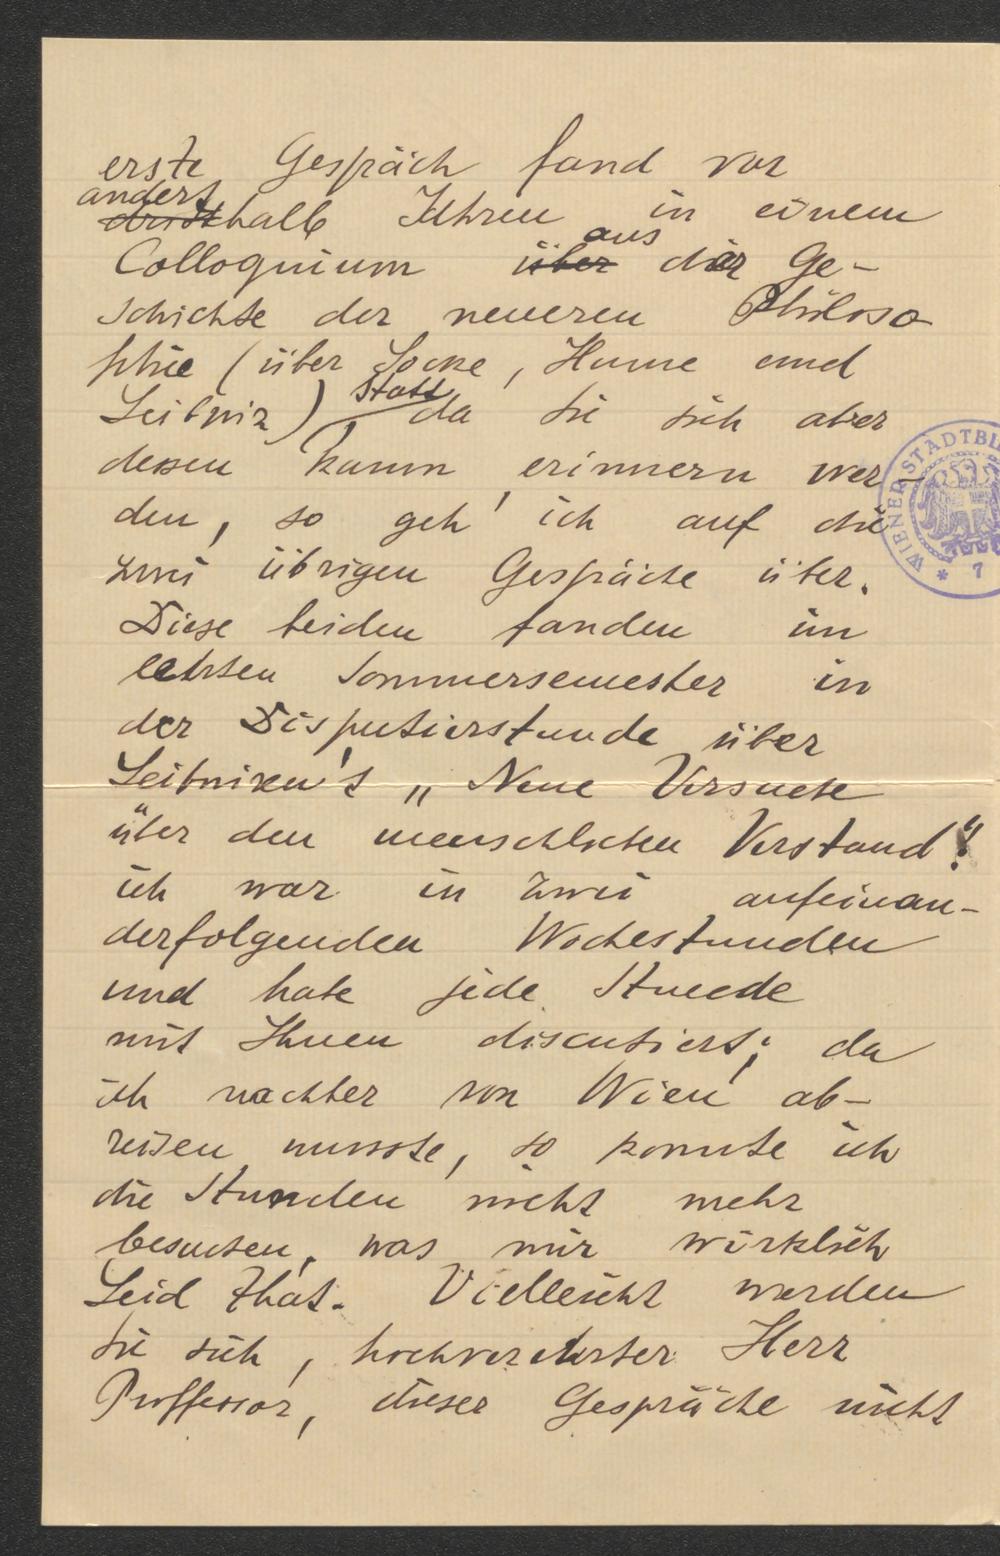 erste Gespräch fand vor
andert
halb Jahren in einem
aus
Colloquium über der Ge-
schichte der neueren Philoso
phie (über Locke, Hume und
statt
Leibniz), da Sie sich aber
dessen kaum erinnern wer-
den, so geh' ich auf die
zwei übrigen Gespräche über.
Diese beiden fanden im
letzten Sommersemester in
der Disputierstunde über
Leibnizen's „Neue Versuche
über den menschlichen Verstand“.
ich war in zwei aufeinan-
derfolgenden Wochestunden
und habe jede Stunde
mit Ihnen discutiert; da
ich nachher von Wien ab-
reisen musste, so konnte ich
die Stunden nicht mehr
besuchen, was mir wirklich
Leid that. Vielleicht werden
Sie sich, hochverehrter Herr
Proffessor, dieser Gespräche nicht
WIENER STADTBI
* 7